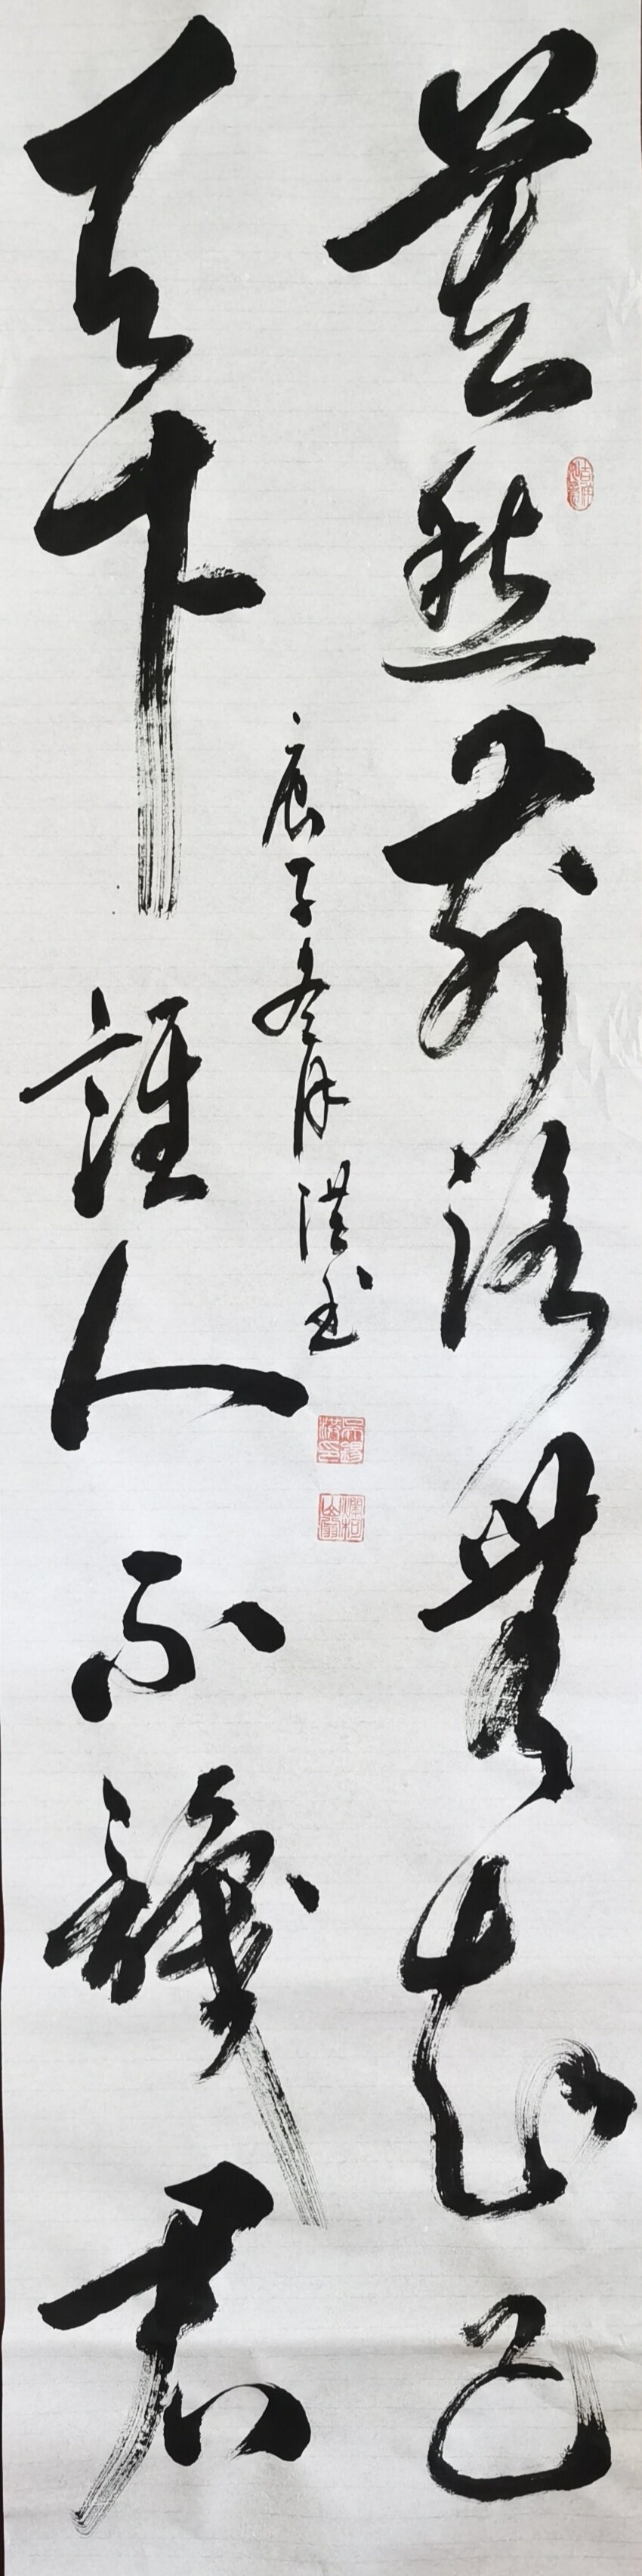 莫愁前路無知己
天下誰人不識君
庚子冬月洪